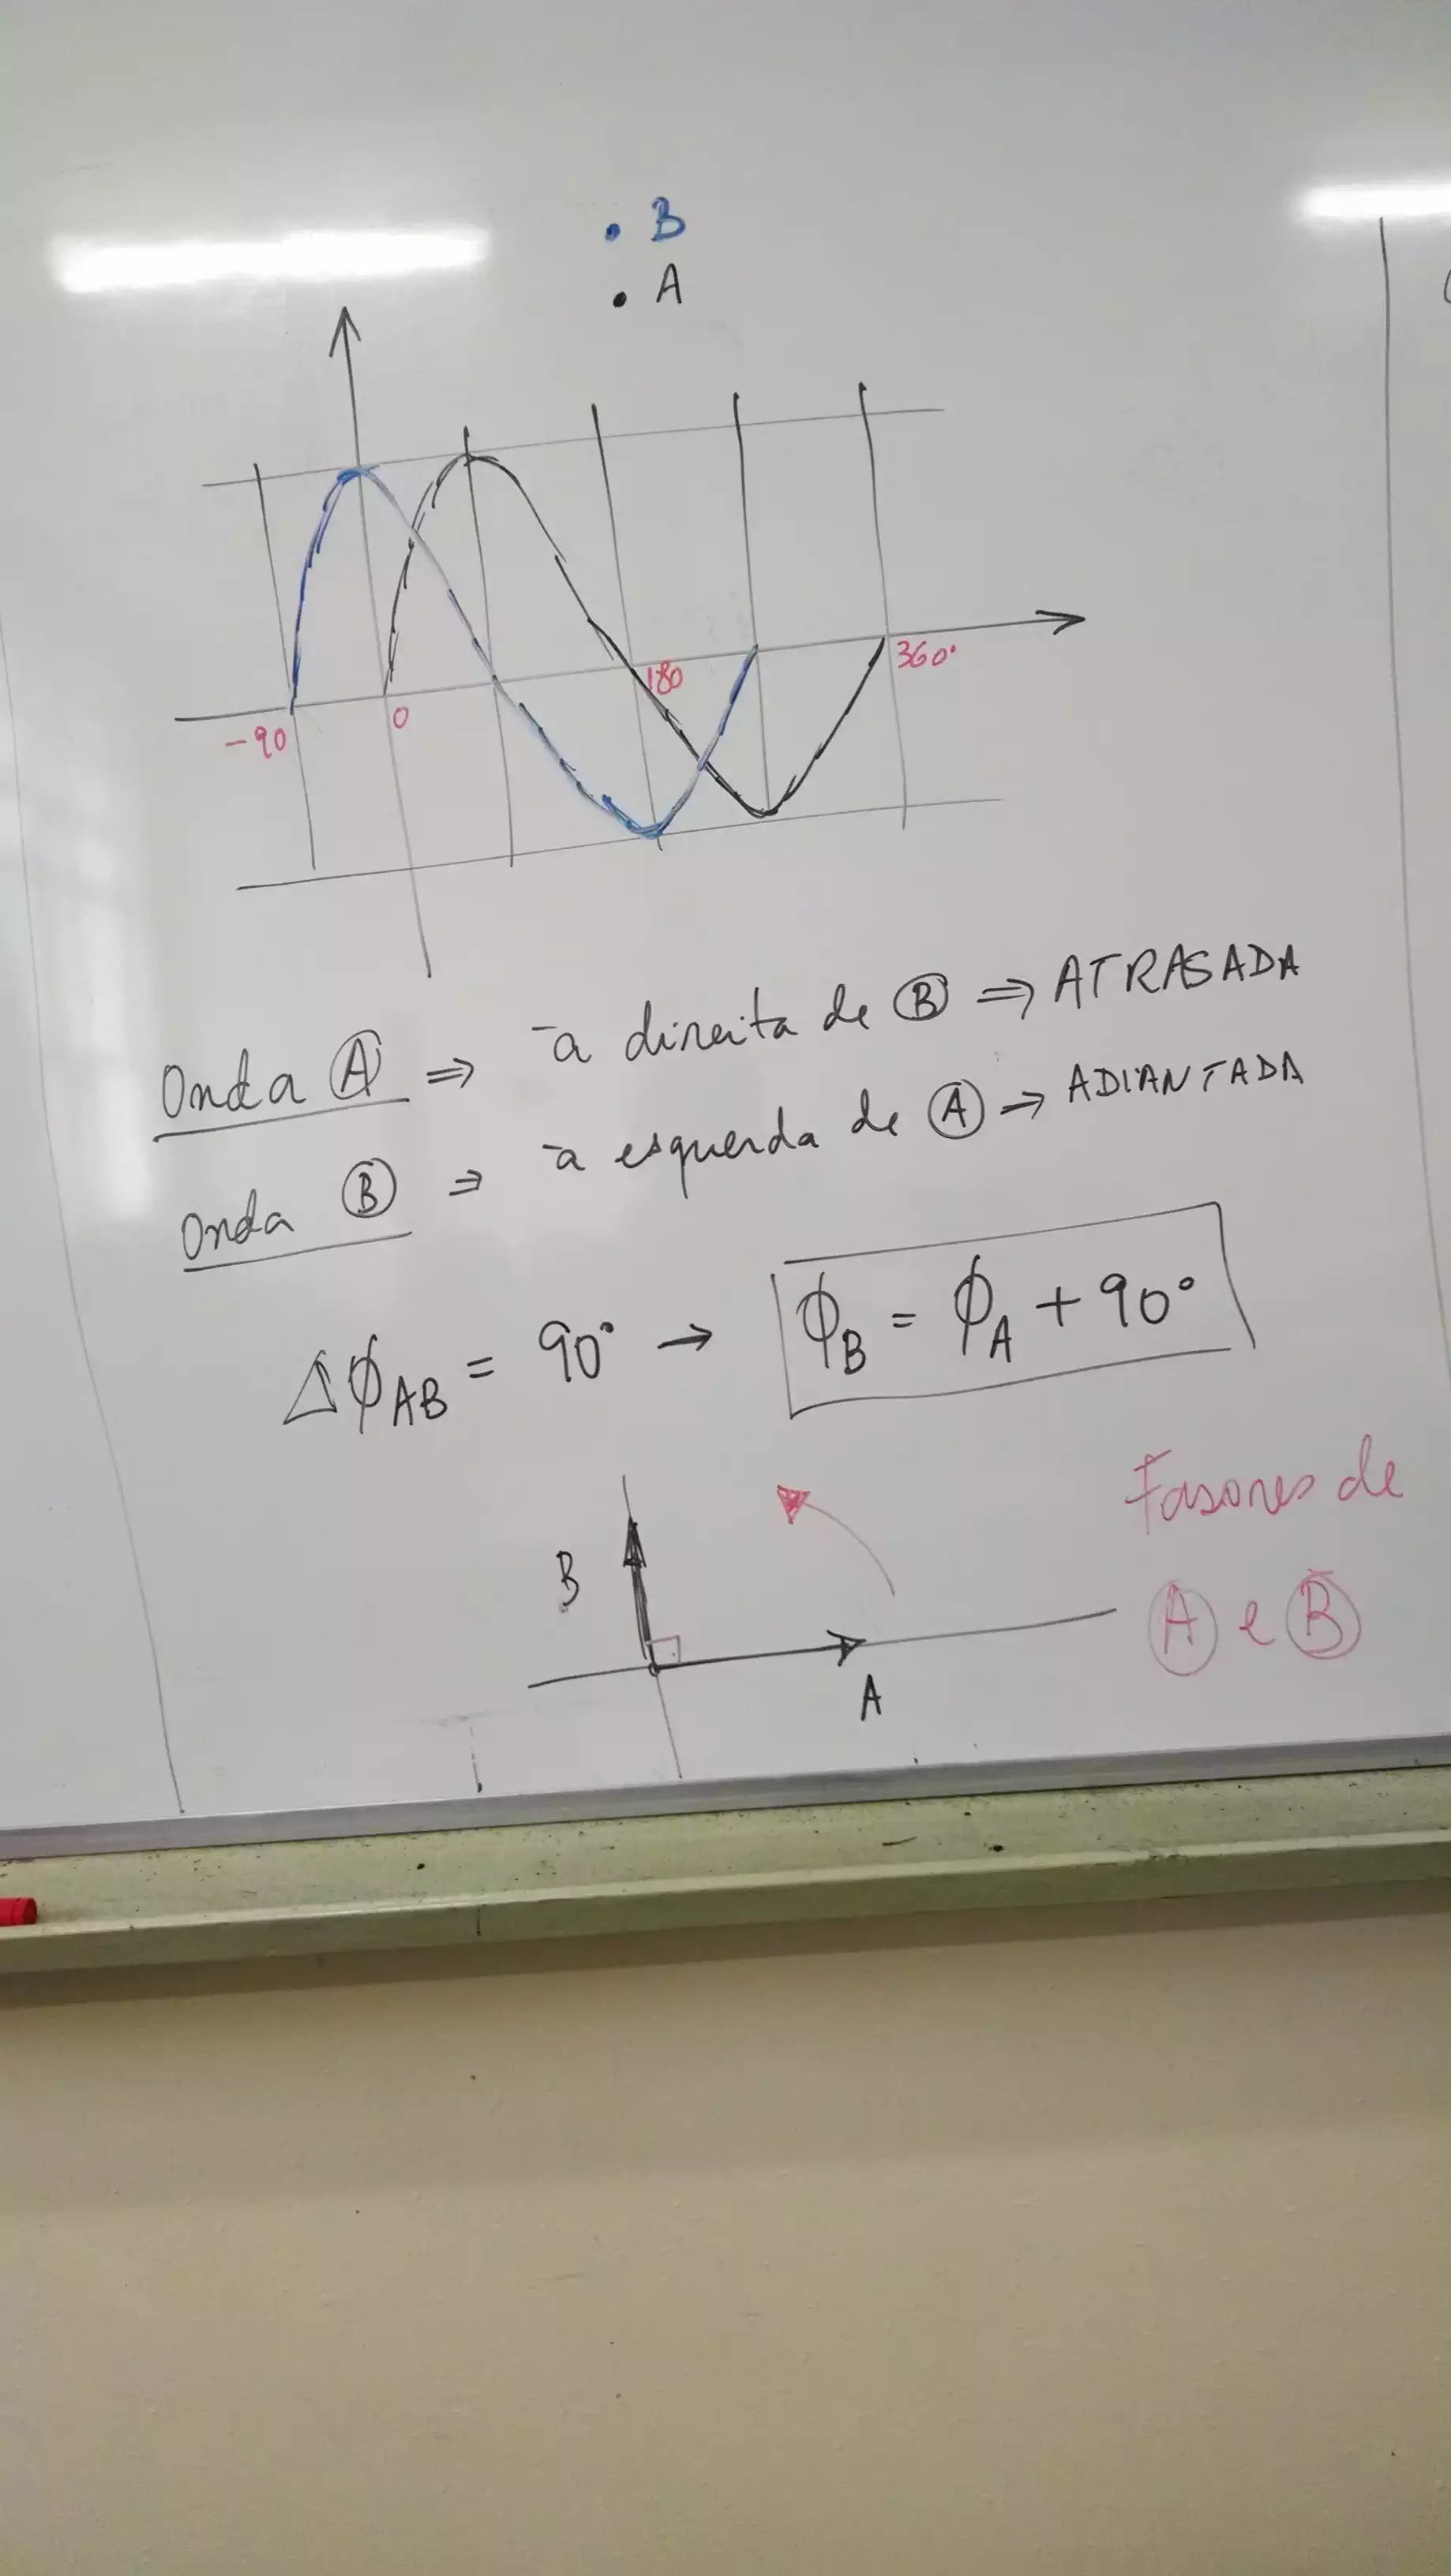 B
A
-90
0
180
360°
Onda A ⇒ à direita de B ⇒ ATRASADA
Onda B ⇒ à esquerda de A → ADIANTADA
ΔϕAB = 90° → ϕB = ϕA + 90°
Fasores de
A e B
B
A